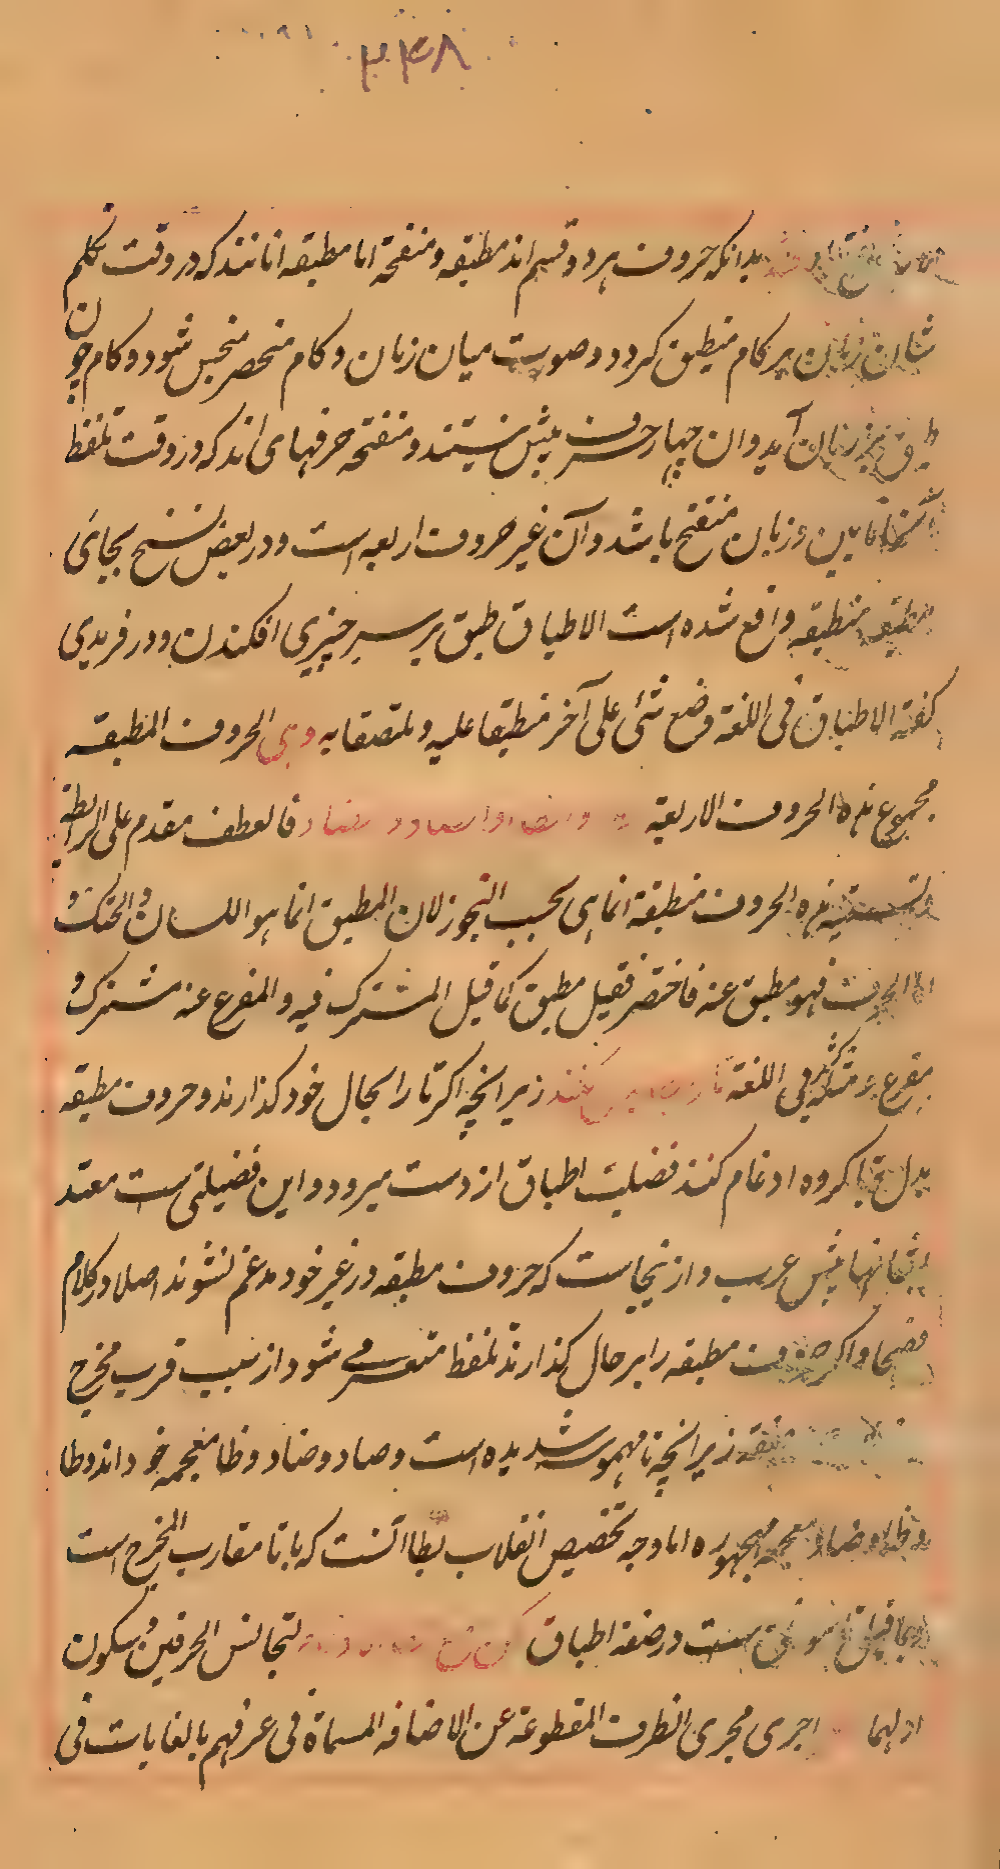 ۲۴۸
بدانکه حروف بر دو قسم اند مطبقه و منفتحه اما مطبقه انانند که در وقت تکلم
شان زبان بر کام منطبق کردد و صوت میان زبان و کام منحصر منحبس شود و کام چون
طبق بر زبان آید و ان چهار حرف بیش نیستند و منفتحه حرفهای اند که در وقت تلفظ
مابین و زبان منفتح باشد و آن غیر حروف اربعه است و در بعض نسخ بجای
مطبقه منطبقه واقع شده است الاطباق طبق بر سر چیزی افکندن و در فریدی
کفته الاطباق فی اللغة وضع شئ علی آخر منطبقا علیه و ملتصقا به و هی الحروف المطبقه
مجموع هذه الحروف الاربعة فالعطف مقدم علی الرابطة
هذه الحروف منطبقة انما هی بحسب التجوز لان المطبق انما هو اللسان و الحنک و
اما الحرف فهو مطبق عنه فاختصر فقیل مطبق کما قیل المشترک فیه و المفرع عنه مشترک و
مفرع و مثله کثیر فی اللغة زیرانچه اکر تا را بحال خود کذارند و حروف مطبقه
بدل بتا کرده ادغام کنند فضلیت اطباق از دست میرود و این فضیلتی ست معتد
پیش عرب و ازینجاست که حروف مطبقه در غیر خود مدغم نشوند اصلا در کلام
فصحا و اکر حروف مطبقه را بر حال کذارند تلفظ متعسر می شود از سبب قرب مخرج
زیرانچه تا مهموسه شدیده است و صاد و ضاد و ظا معجمه خو داند و طا
و ظا و ضاد معجمه مجهوره اما وجه تخصیص انقلاب بطا انست که با تا مقارب المخرج است
ست در صفة اطباق لتجانس الحرفین و سکون
اولهما اجری مجری الظرف المقطوعة عن الاضافه المسماة فی عرفهم بالغایات فی